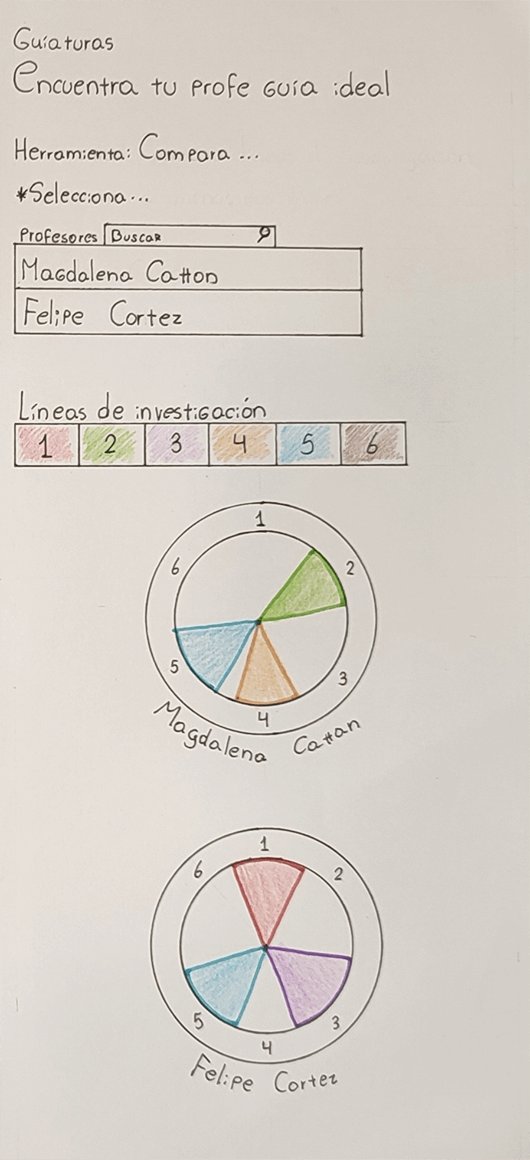 Guíaturas
Encuentra tu profe guía ideal
Herramienta: Compara ...
*Selecciona...
Profesores Buscar
Magdalena Catton
Felipe Cortez
Líneas de investigación
1 2 3 4 5 6
1
6 2
5 3
4
Magdalena Cattan
1
6 2
5 3
4
Felipe Cortez